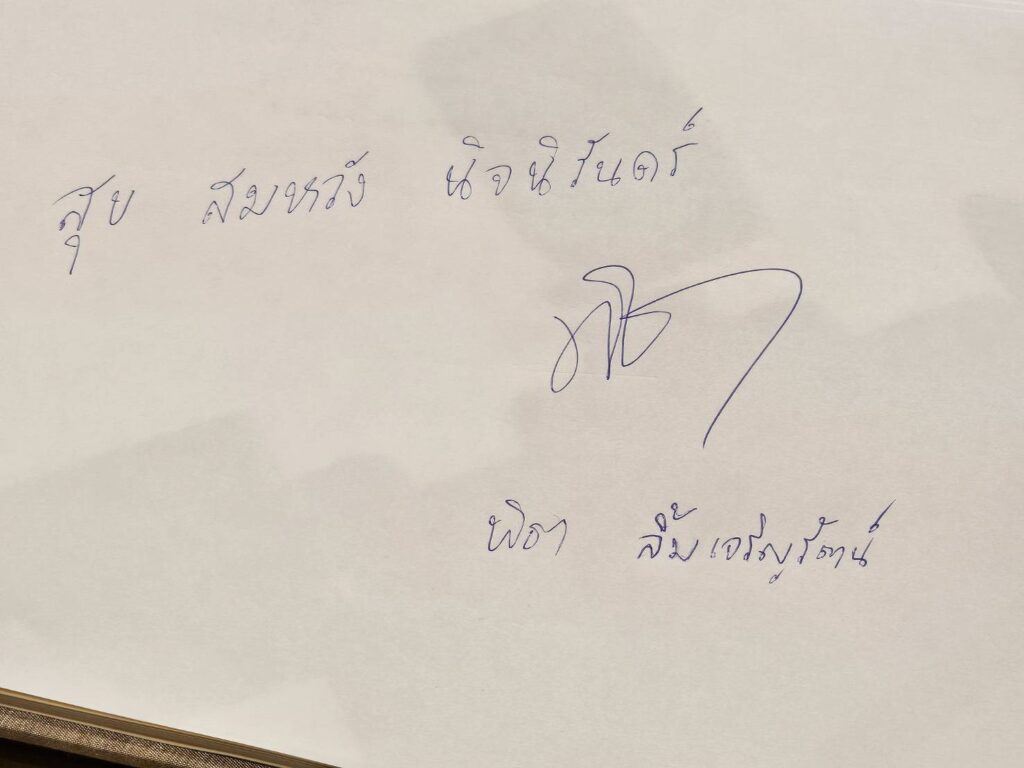 สุข สมหวัง นิจนิรันดร์
พิธา ลิ้มเจริญรัตน์